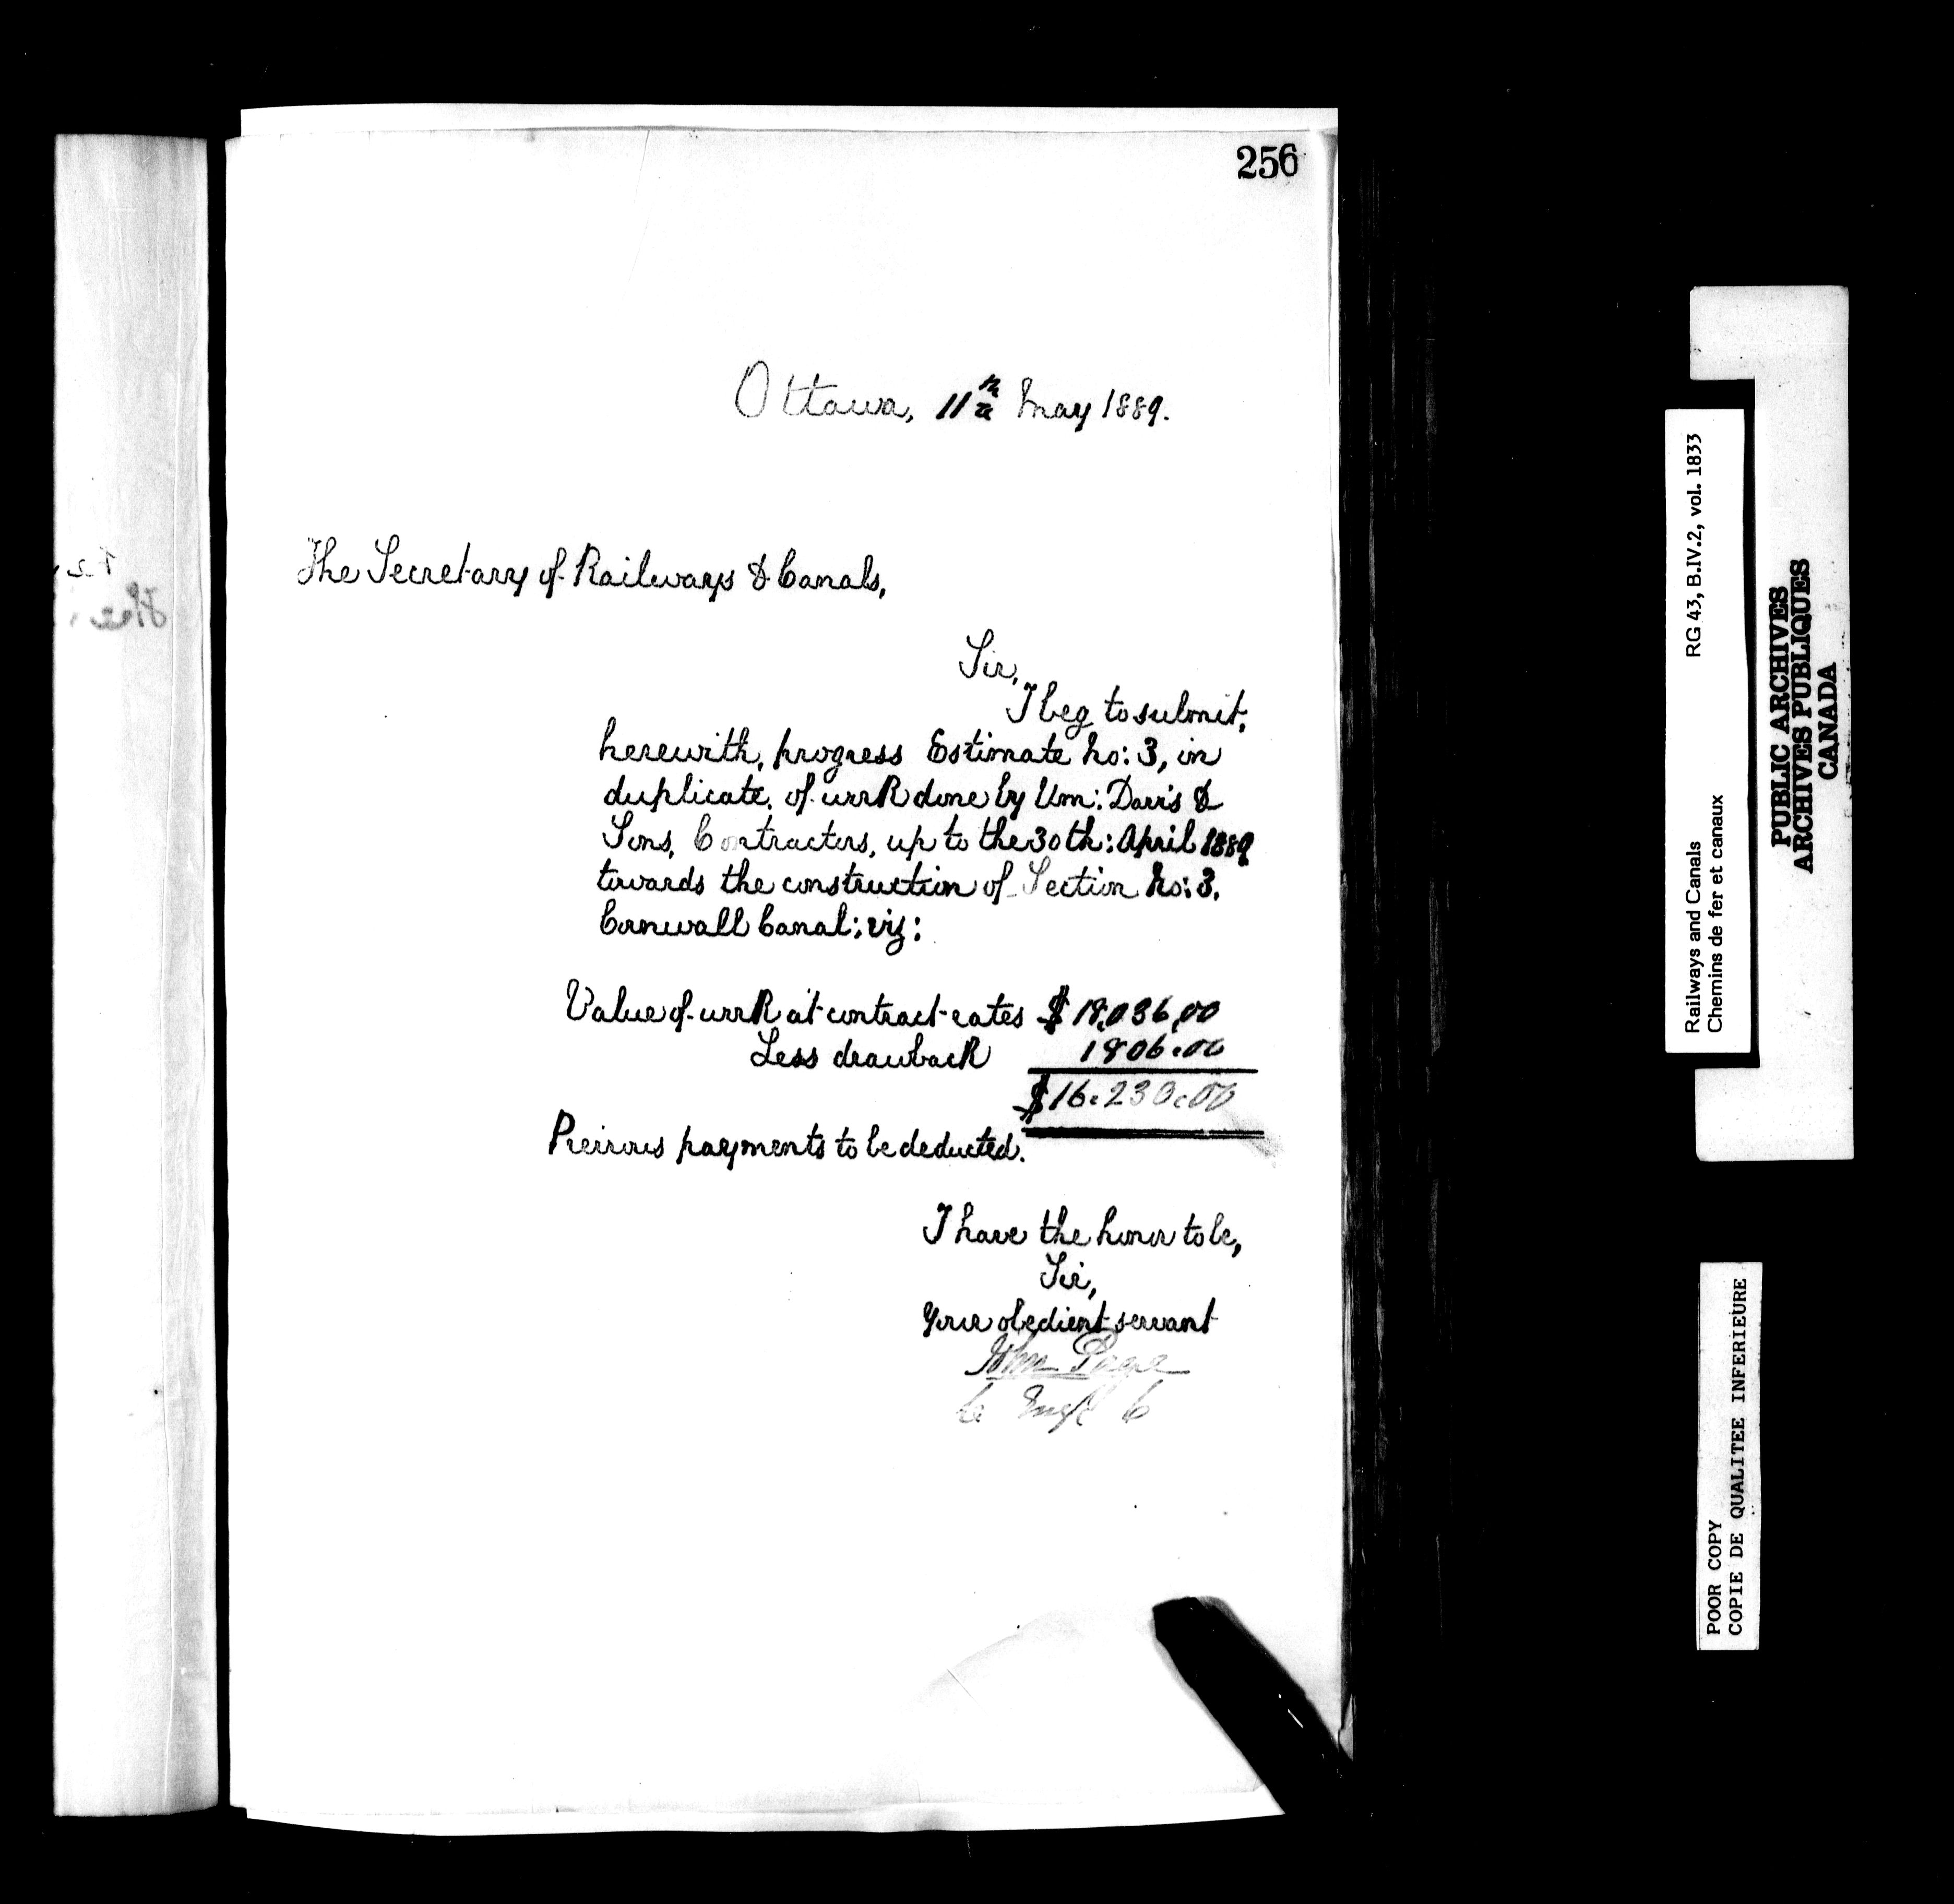 256
Ottawa, 11th May 1889.
The Secretary of Railways & Canals,
Sir,
I beg to submit,
herewith, progress Estimate No: 3, in
duplicate, of work done by Wm: Davis &
Sons, Contractors, up to the 30th: April 1889
towards the construction of Section No: 3.
Cornwall Canal: viz:
Value of work at contract rates $ 18,036,00
Less drawback 1806.00
$16.230.00
Previous payments to be deducted.
I have the honor to be,
Sir,
Your obedient servant
John Page
Railways and Canals RG 43, B.IV.2, vol. 1833
Chemins de fer et canaux
PUBLIC ARCHIVES
ARCHIVES PUBLIQUES
CANADA
POOR COPY
COPIE DE QUALITEE INFERIEURE